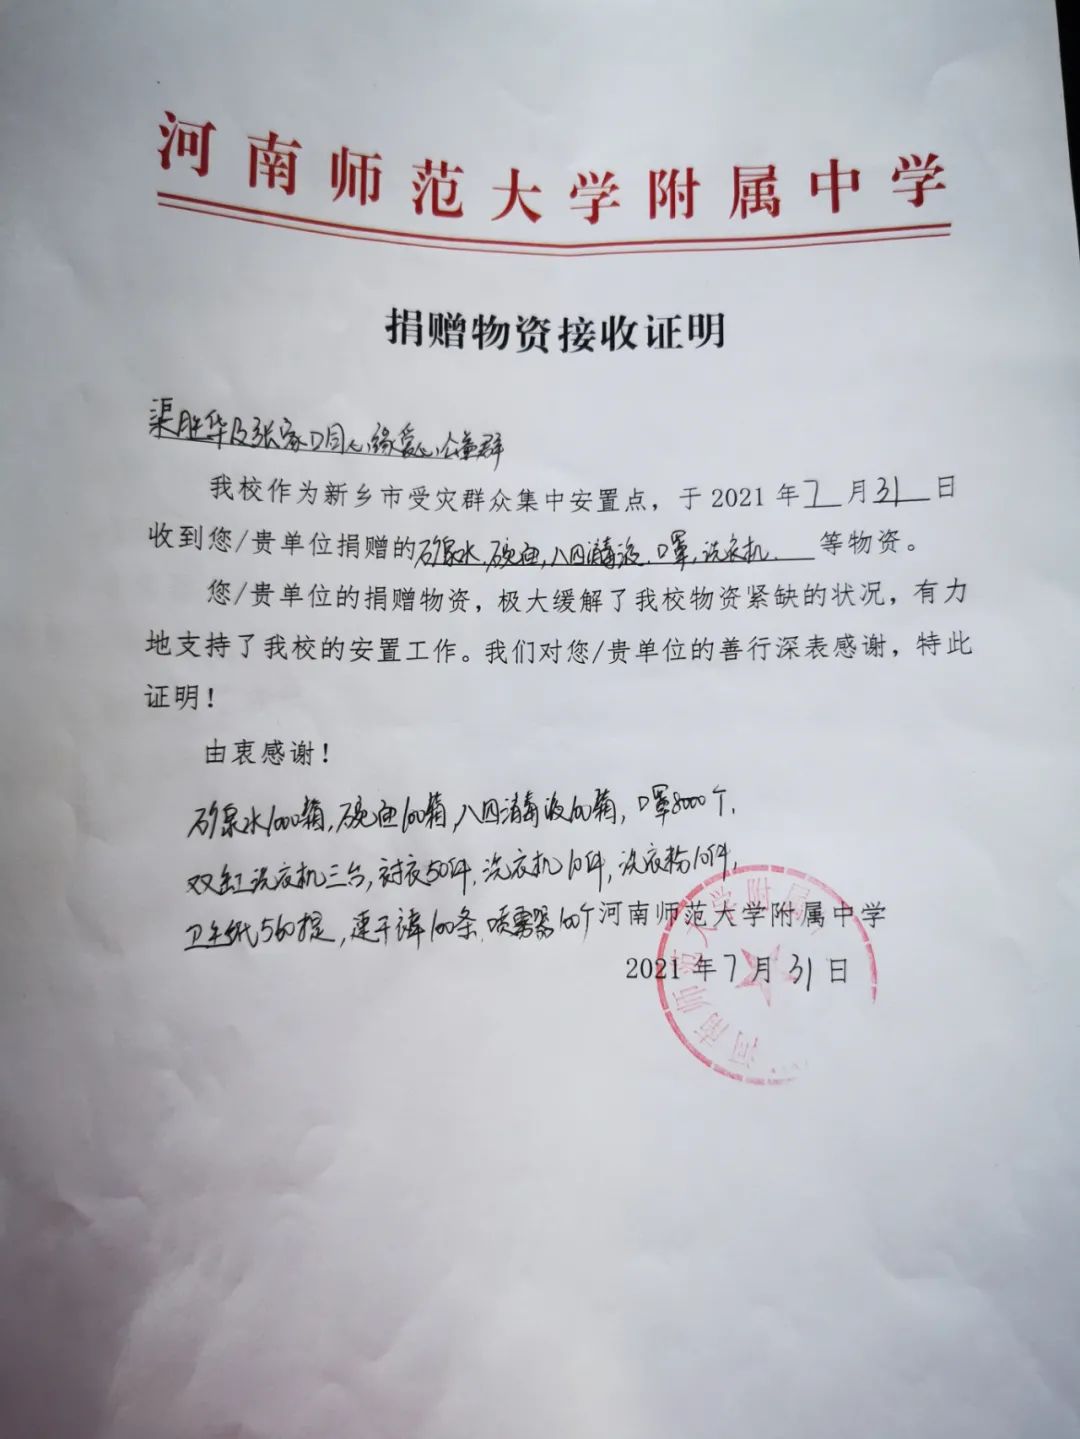 河南师范大学附属中学
捐赠物资接收证明
渠胜华及张家口同心缘爱心企业群
我校作为新乡市受灾群众集中安置点，于 2021 年 7 月 31 日
收到您/贵单位捐赠的矿泉水，碗面，八四消毒液，口罩，洗衣机 等物资。
您/贵单位的捐赠物资，极大缓解了我校物资紧缺的状况，有力
地支持了我校的安置工作。我们对您/贵单位的善行深表感谢，特此
证明！
由衷感谢！
矿泉水1000箱，碗面100箱，八四消毒液100箱，口罩8000个，
双缸洗衣机三台，衬衣50件，洗衣机10件，洗衣粉10件，
卫生纸560提，速干裤100条，喷雾器100个
河南师范大学附属中学
2021 年 7 月 31 日
河南师范大学附属